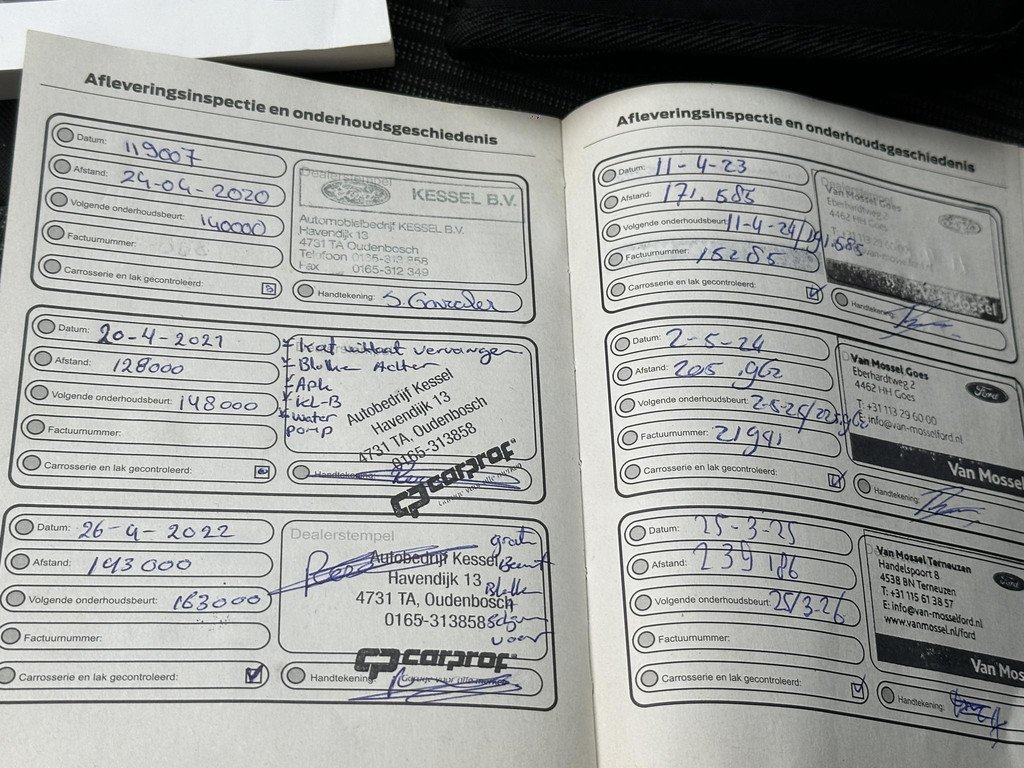 Afleveringsinspectie en onderhoudsgeschiedenis
Datum: 119007
Afstand: 24-04-2020
Volgende onderhoudsbeurt: 140000
Factuurnummer:
Carrosserie en lak gecontroleerd:
Dealerstempel
Ford KESSEL B.V.
Automobielbedrijf KESSEL B.V.
Havendijk 13
4731 TA Oudenbosch
Telefoon 0165-313 858
Fax 0165-312 349
Handtekening:
Datum: 20-4-2021
Afstand: 128000
Volgende onderhoudsbeurt: 148000
Factuurnummer:
Carrosserie en lak gecontroleerd:
* vervangen
* Achter
* Apk
* Kl-B
* water
pomp
Autobedrijf Kessel
Havendijk 13
4731 TA, Oudenbosch
0165-313858
carprof
Garage voor alle merken
Handtekening:
Datum: 26-4-2022
Afstand: 143000
Volgende onderhoudsbeurt: 163000
Factuurnummer:
Carrosserie en lak gecontroleerd:
Dealerstempel
Autobedrijf Kessel
Havendijk 13
4731 TA, Oudenbosch
0165-313858
voor
carprof
Garage voor alle merken
Handtekening:
Afleveringsinspectie en onderhoudsgeschiedenis
Datum: 11-4-23
Afstand: 171.585
Volgende onderhoudsbeurt: 11-4-24/191.585
Factuurnummer: 15285
Carrosserie en lak gecontroleerd:
Van Mossel Goes
Eberhardtweg 2
4462 HH Goes
Handtekening:
Datum: 2-5-24
Afstand: 205.962
Volgende onderhoudsbeurt: 2-5-25/225.962
Factuurnummer: 21991
Carrosserie en lak gecontroleerd:
Van Mossel Goes
Eberhardtweg 2
4462 HH Goes
T: +31 113 29 60 00
E: info@van-mosselford.nl
Ford
Van Mossel
Handtekening:
Datum: 25-3-25
Afstand: 239186
Volgende onderhoudsbeurt: 25/3-26
Factuurnummer:
Carrosserie en lak gecontroleerd:
Van Mossel Terneuzen
Handelspoort 8
4538 BN Terneuzen
T: +31 115 61 38 57
E: info@van-mosselford.nl
www.vanmossel.nl/ford
Ford
Van Mos
Handtekening: